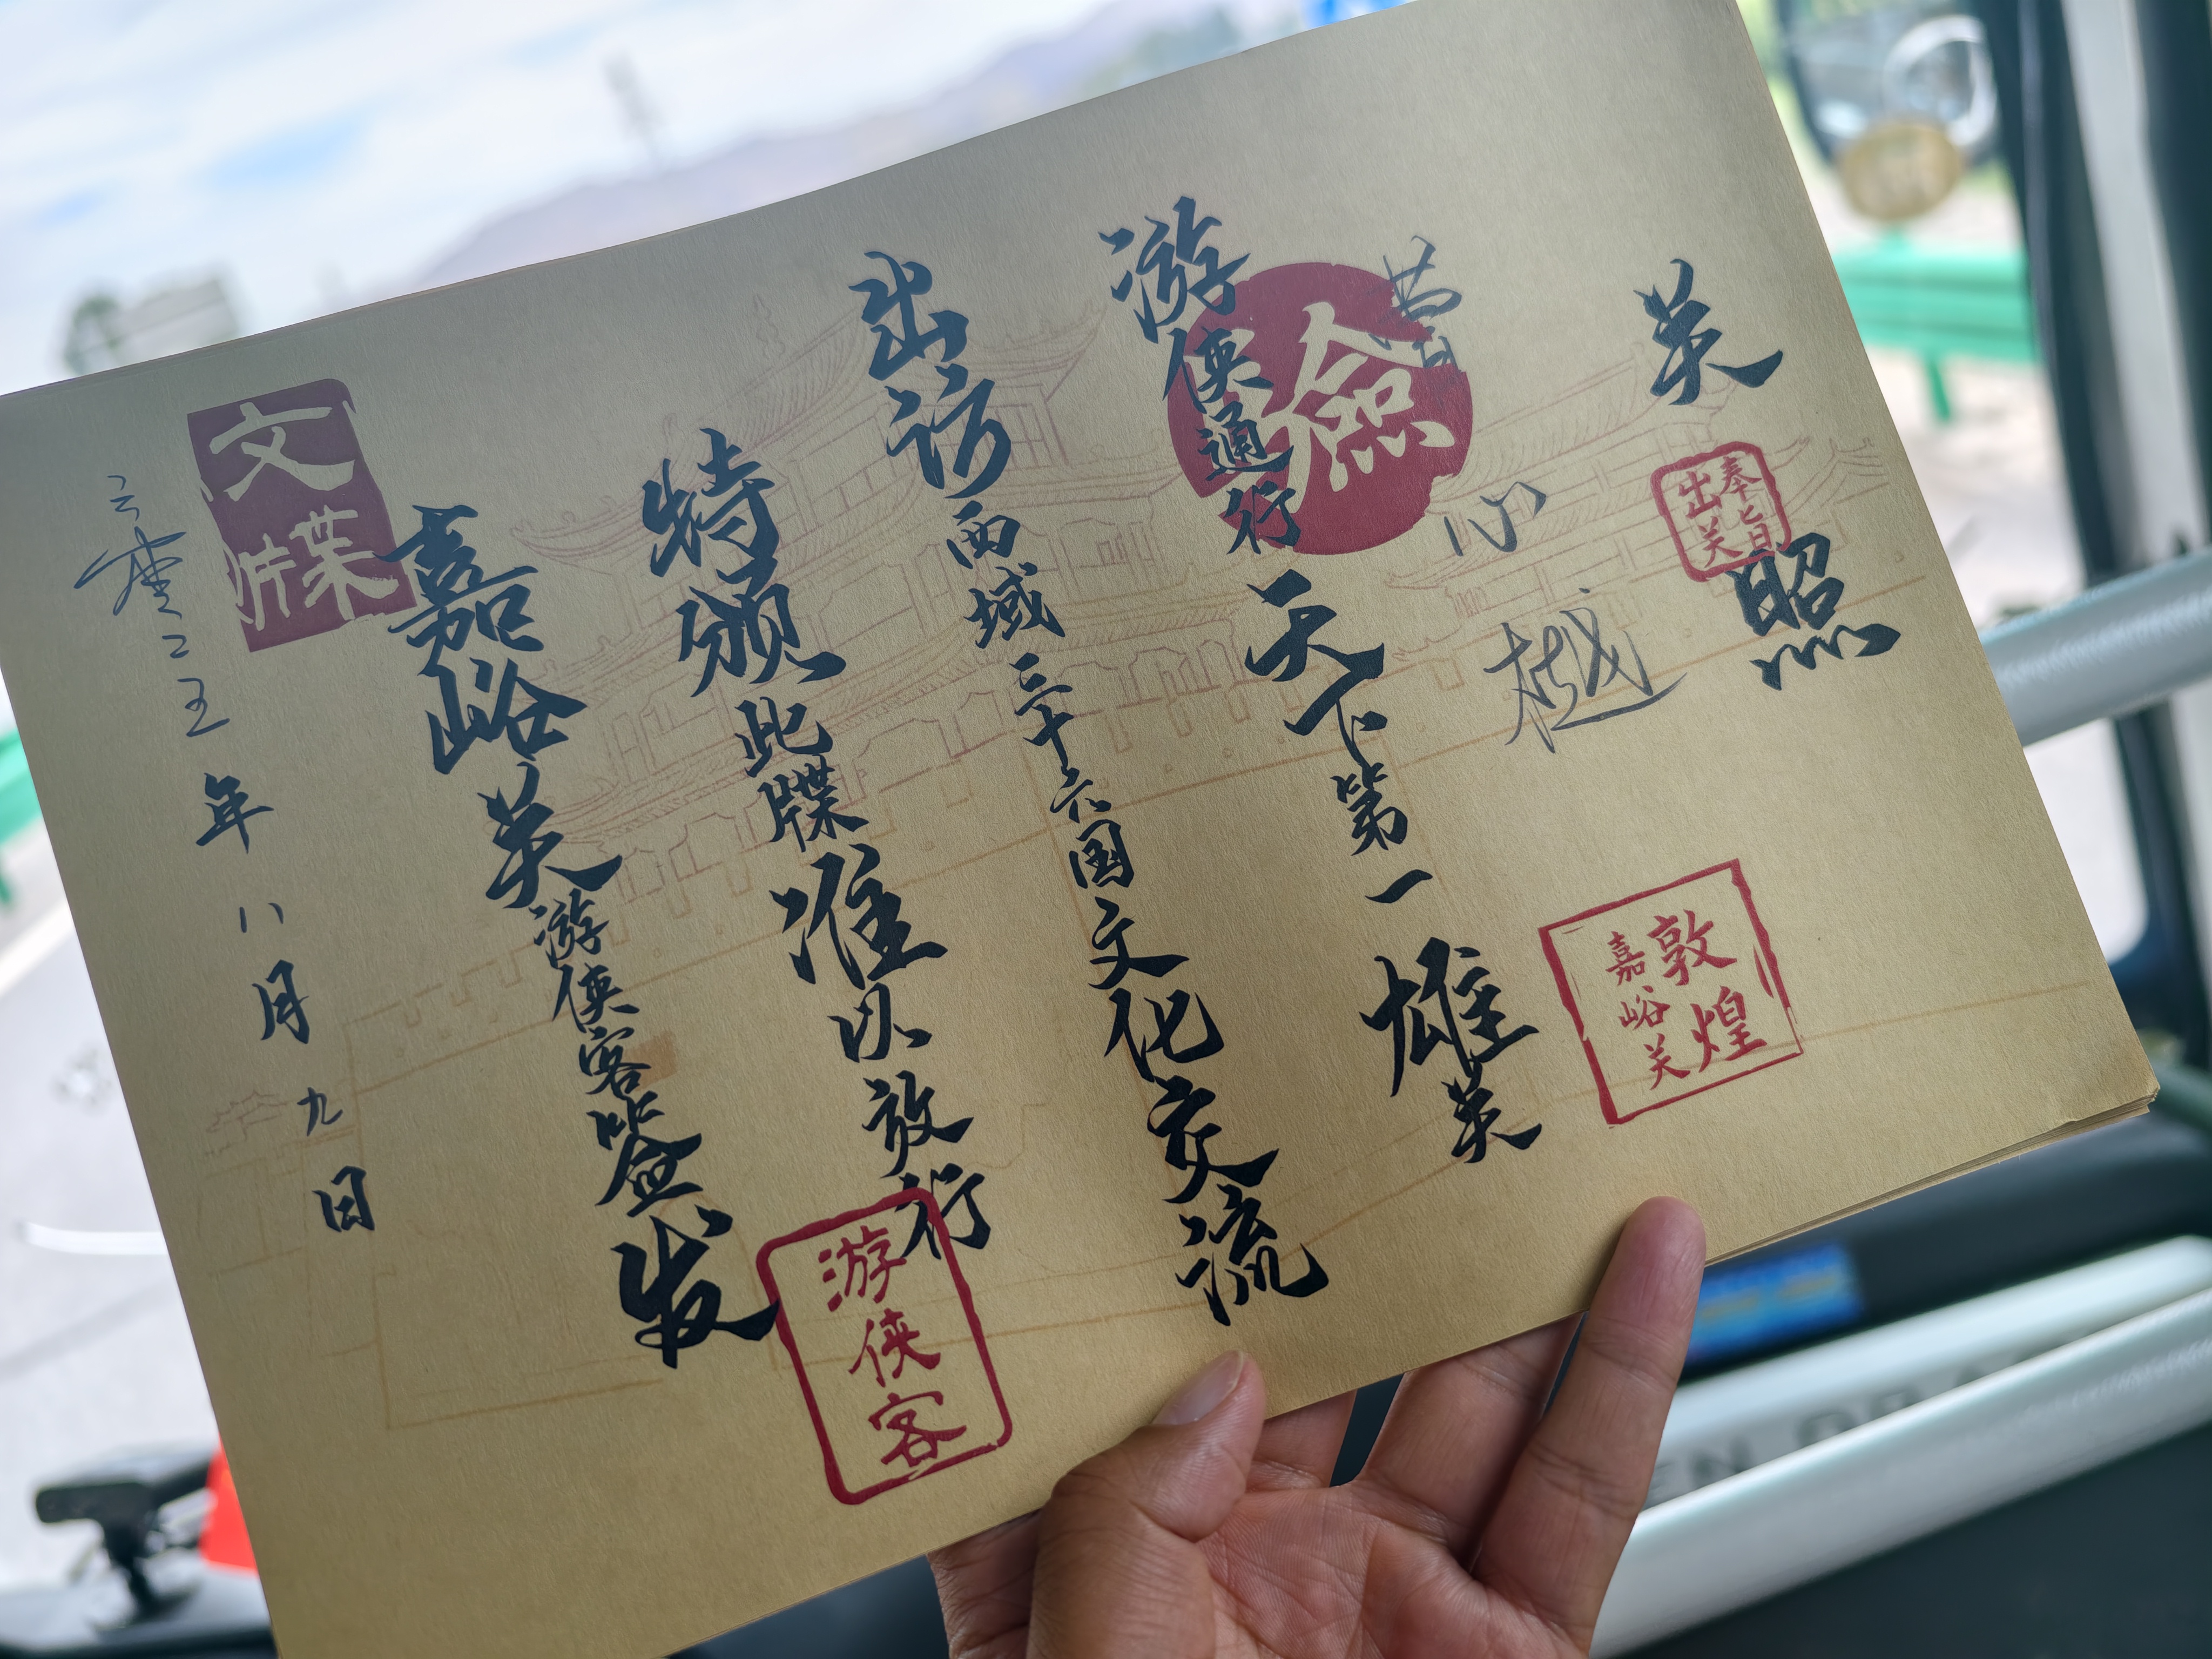 关照
奉旨出关
敦煌
嘉峪关
心越
游侠通行天下第一雄关
验
出访西域三十六国文化交流
特颁此牒准以放行
游侠客
嘉峪关游侠客签发
文牒
年八月九日